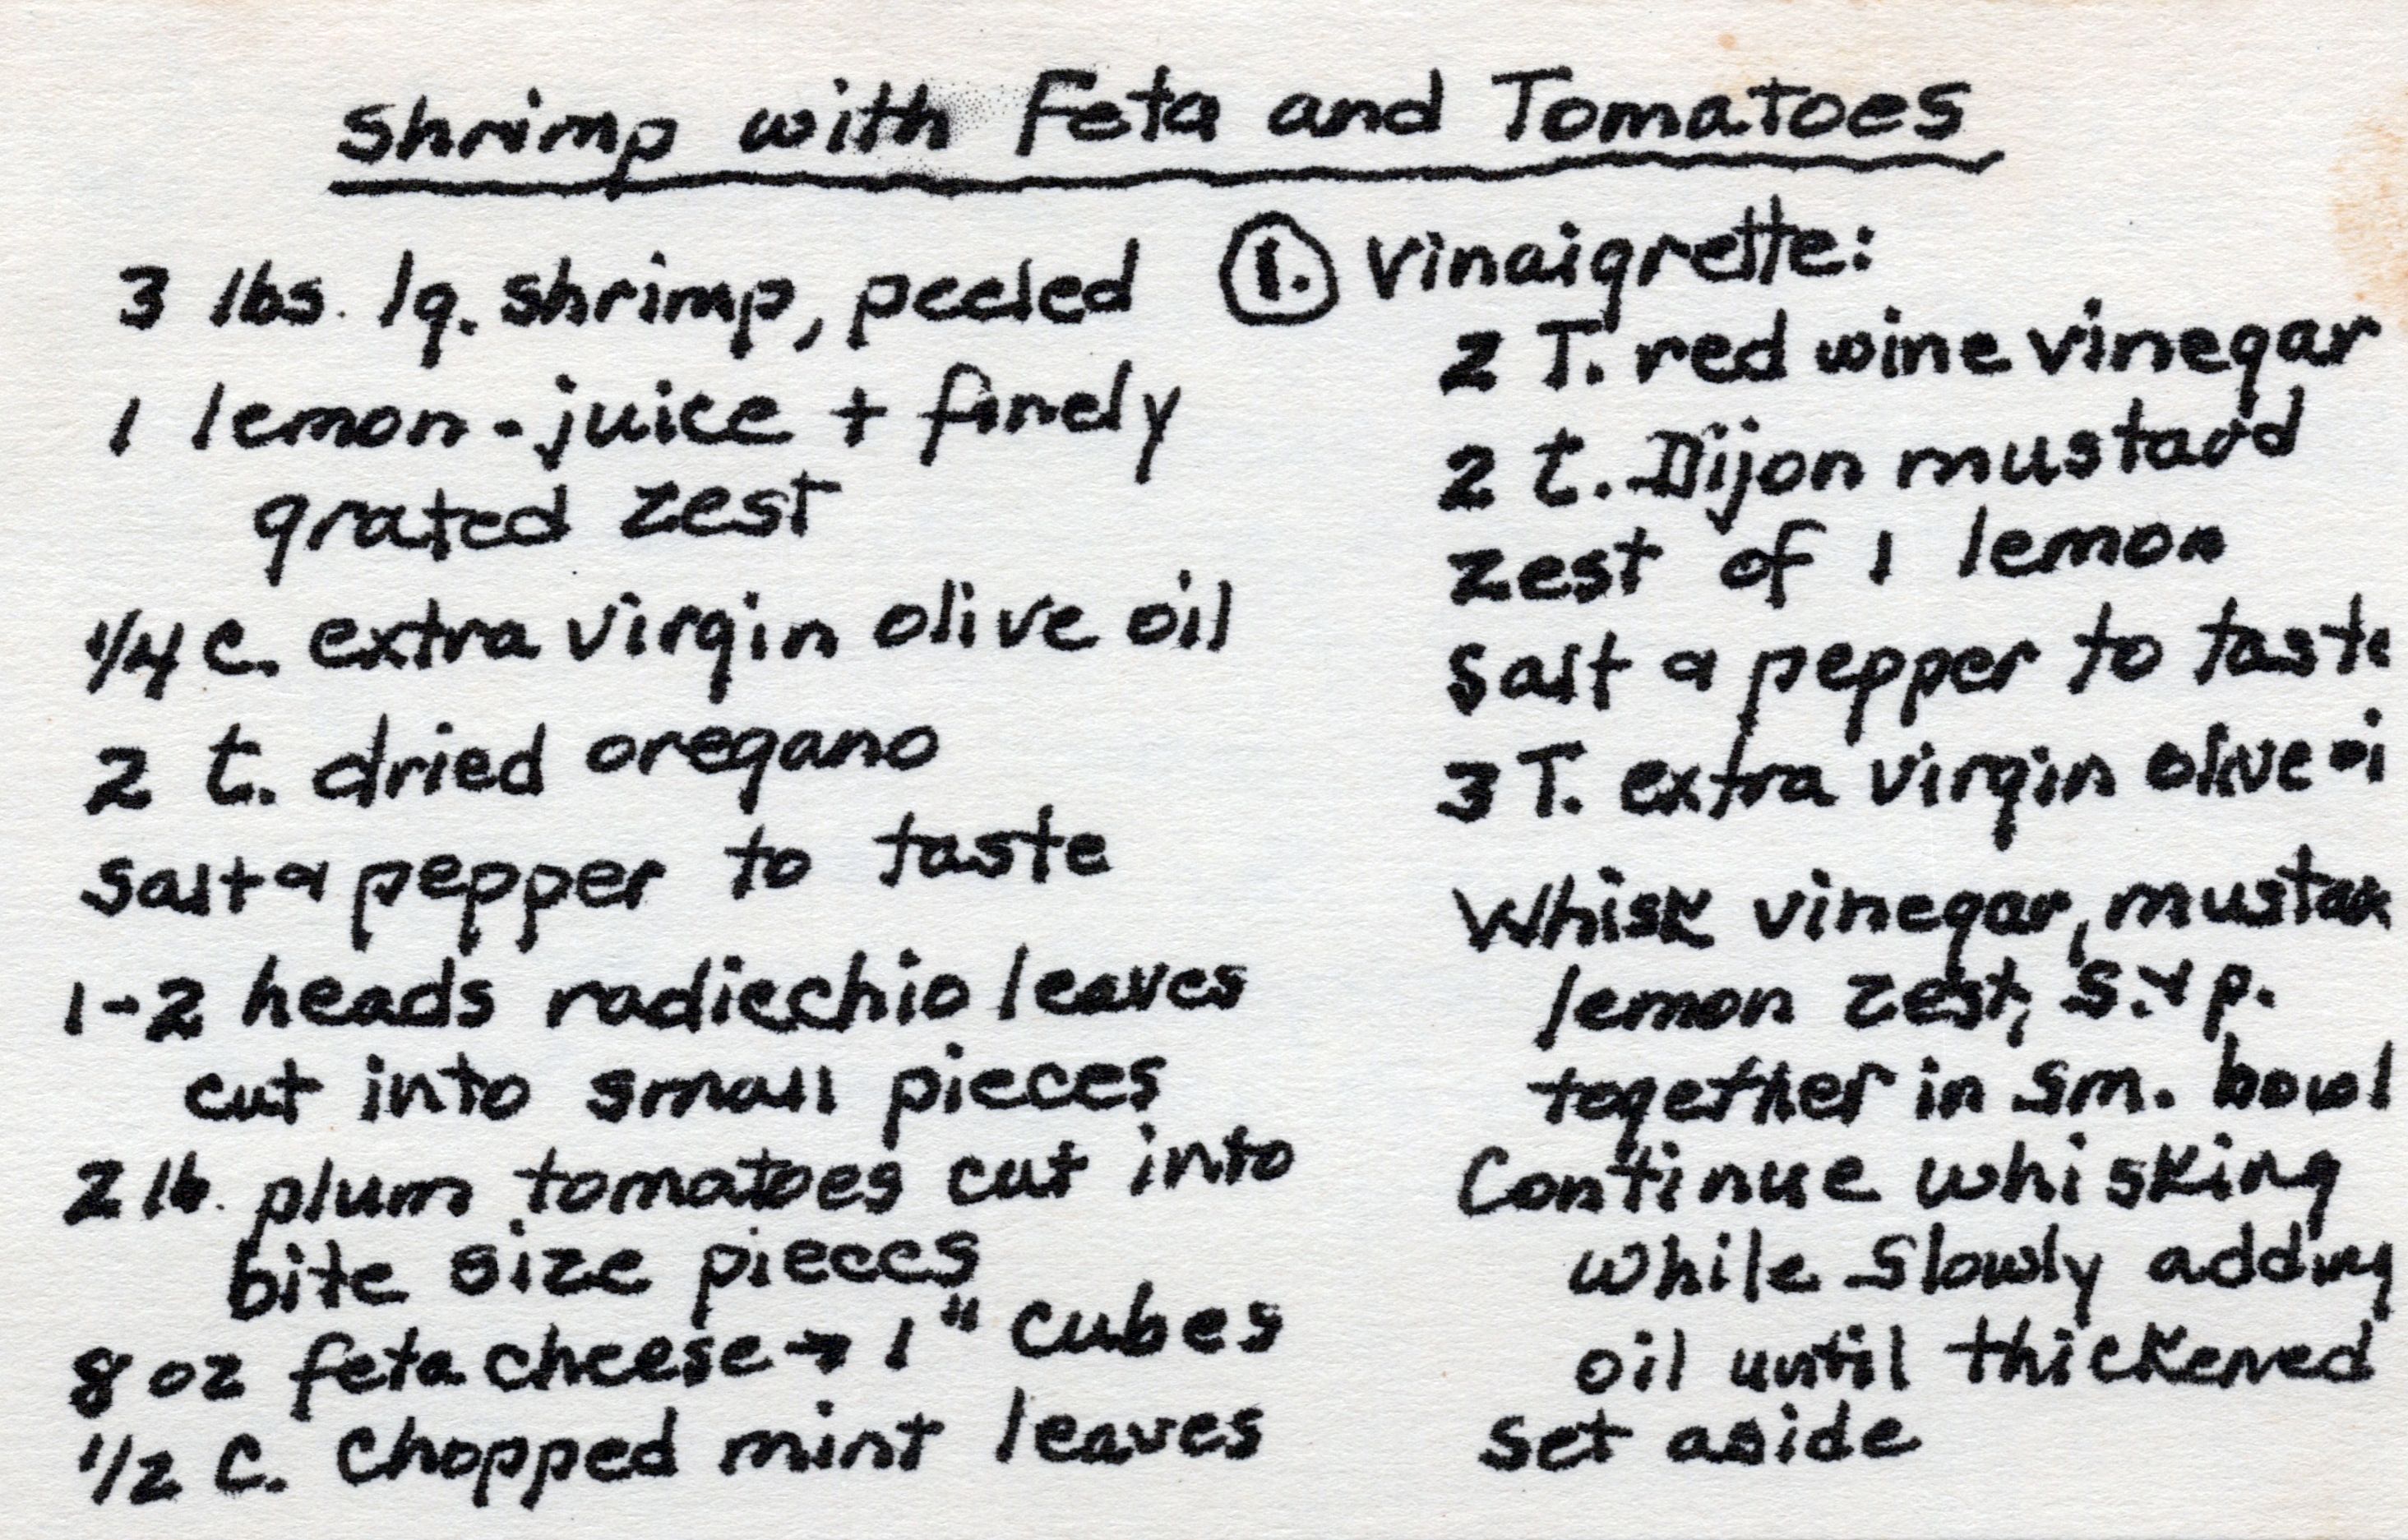 Shrimp with Feta and Tomatoes
3 lbs. lg. shrimp, peeled
1 lemon - juice + finely
grated zest
1/4 c. extra virgin olive oil
2 t. dried oregano
salt & pepper to taste
1-2 heads radiechio leaves
cut into small pieces
2 lb. plum tomatoes cut into
bite size pieces
8 oz feta cheese → 1" cubes
1/2 C. chopped mint leaves
1. Vinaigrette:
2 T. red wine vinegar
2 t. Dijon mustard
zest of 1 lemon
salt & pepper to taste
3 T. extra virgin olive oi
Whisk vinegar, mustar
lemon zest, s. & p.
together in sm. bowl
Continue whisking
while slowly adding
oil until thickened
set aside